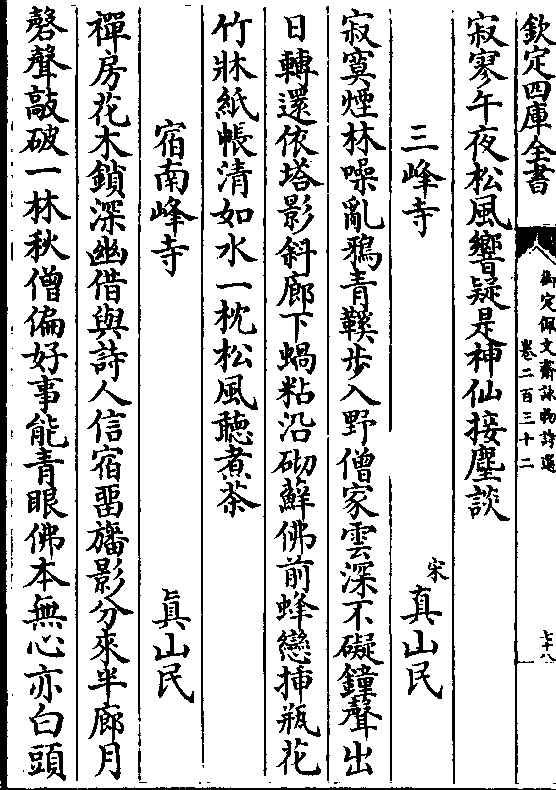 欽定四庫全書
御定佩文齋詠物詩選
卷二百三十二
七十八
寂寥午夜松風響疑是神仙接麈談
三峰寺 宋真山民
寂寞煙林噪亂鴉青鞵步入野僧家雲深不礙鐘聲出
日轉還依塔影斜廊下蝸粘沿砌蘚佛前蜂戀揷瓶花
竹牀紙帳清如水一枕松風聽煮茶
宿南峰寺 眞山民
禪房花木鎖深幽借與詩人信宿畱旛影分來半廊月
磬聲敲破一林秋僧偏好事能青眼佛本無心亦白頭